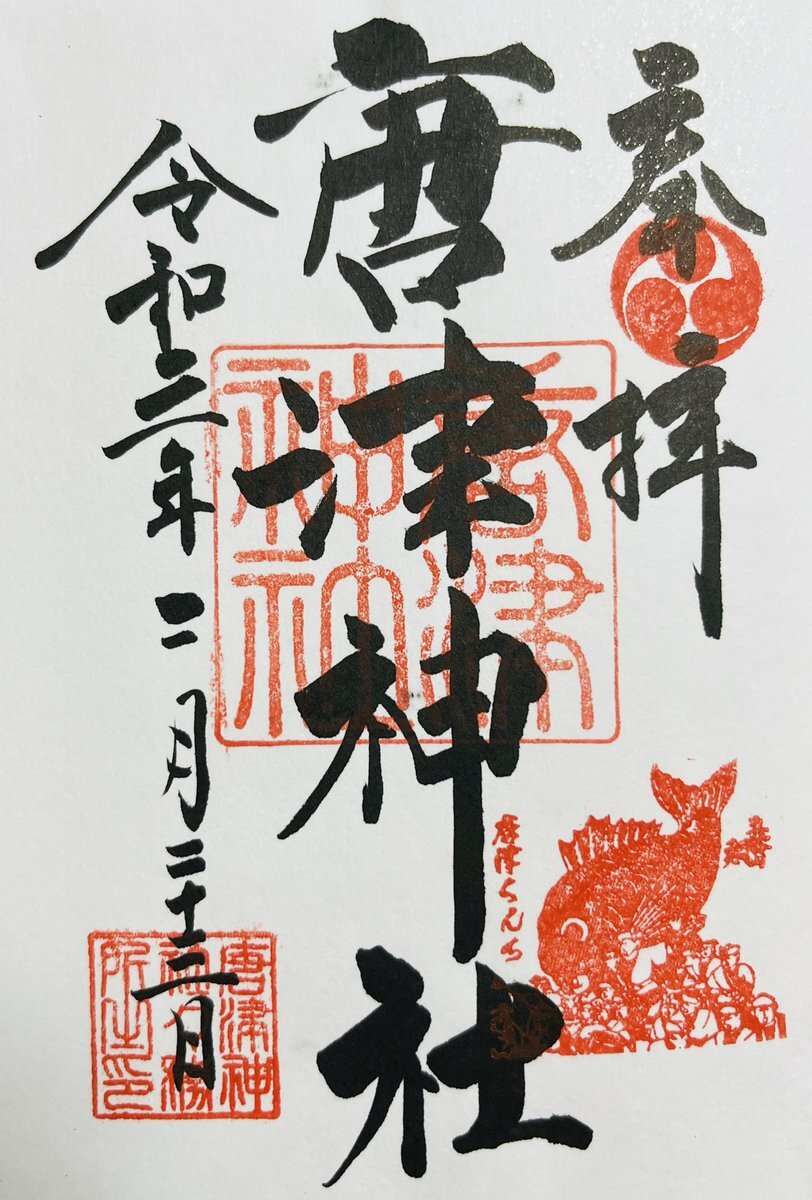 奉拝
唐津神社
令和三年二月二十三日
唐津神社
唐津くんち
唐津神社社務所之印